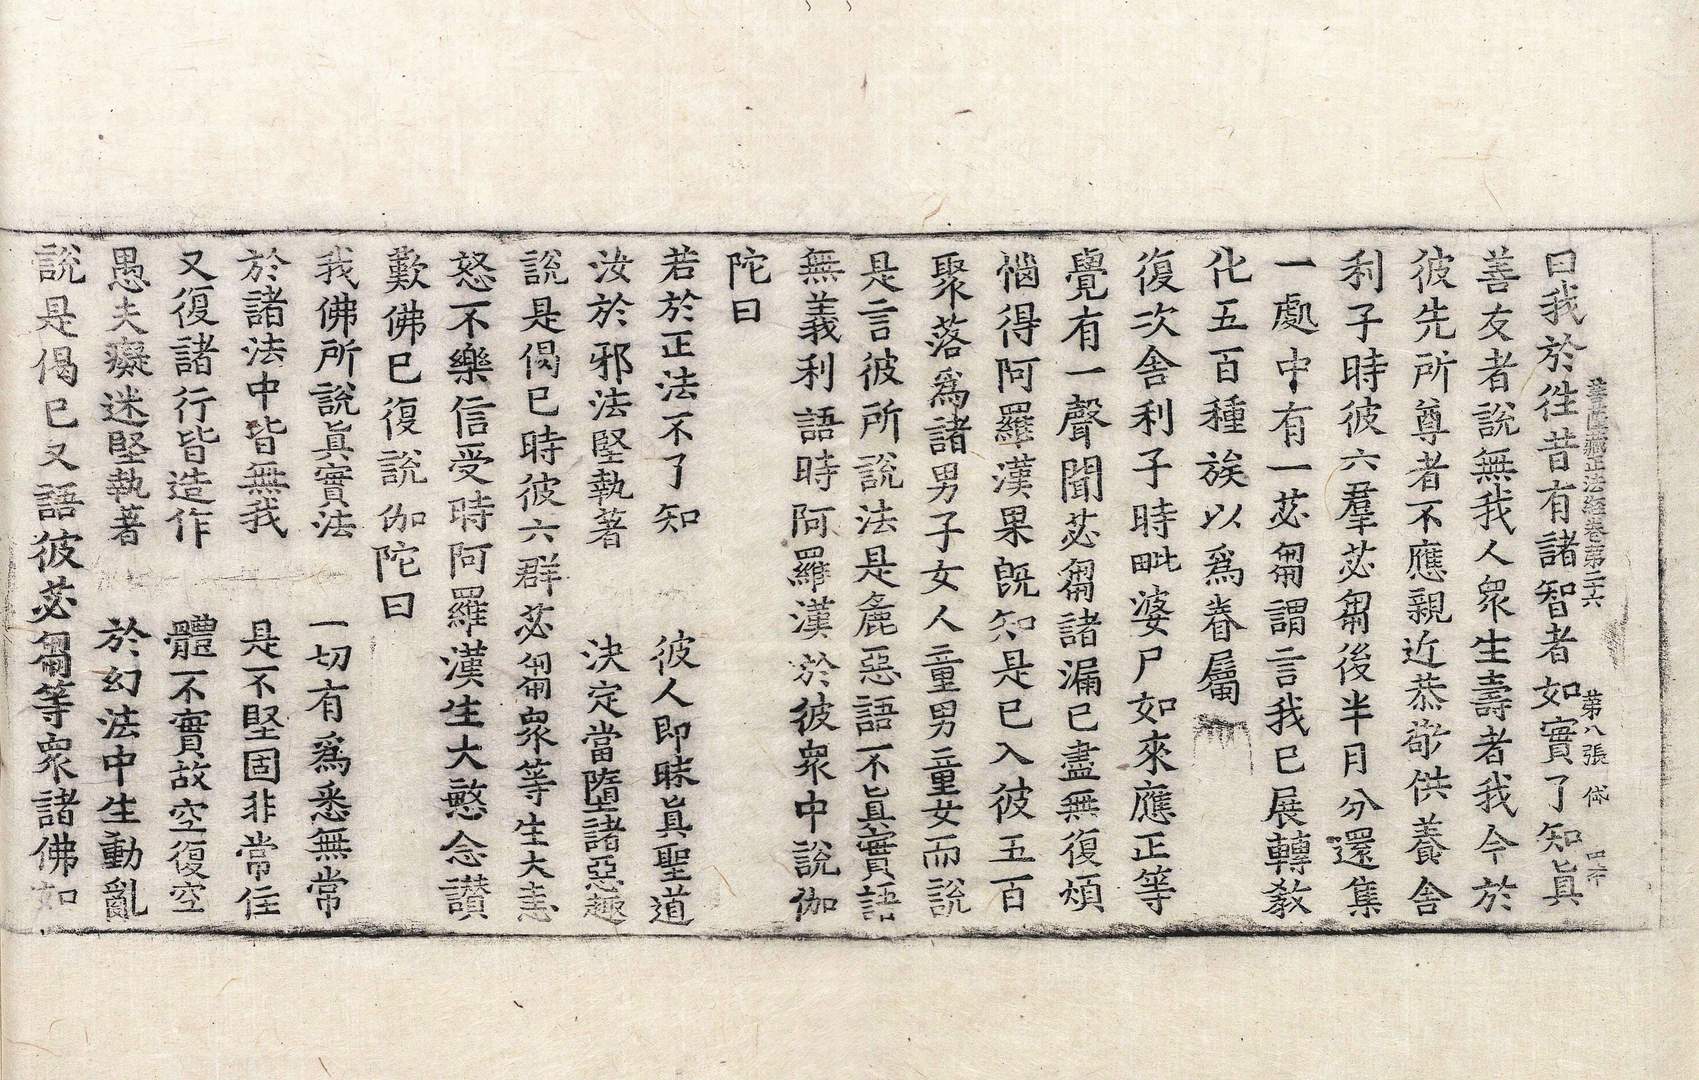 曰我於徃昔有諸智者如實了知眞
菩薩藏正法經卷第三六 第八張 㑀
善友者說無我人衆生壽者我今於
彼先所尊者不應親近恭敬供養舍
利子時彼六羣苾芻後半月分還集
一處中有一苾芻謂言我已展轉教
化五百種族以爲眷屬
復次舍利子時毗婆尸如來應正等
覺有一聲聞苾芻諸漏已盡無復煩
惱得阿羅漢果旣知是已入彼五百
聚落爲諸男子女人童男童女而說
是言彼所說法是麁惡語不眞實語
無義利語時阿羅漢於彼衆中說伽
陀曰
若於正法不了知 彼人即昧眞聖道
汝於邪法堅執著 決定當墮諸惡趣
說是偈已時彼六群苾芻衆等生大恚
怒不樂信受時阿羅漢生大慜念讃
歎佛已復說伽陀曰
我佛所說眞實法 一切有爲悉無常
於諸法中皆無我 是不堅固非常住
又復諸行皆造作 體不實故空復空
愚夫癡迷堅執著 於幻法中生動亂
說是偈已又語彼苾芻等衆諸佛如